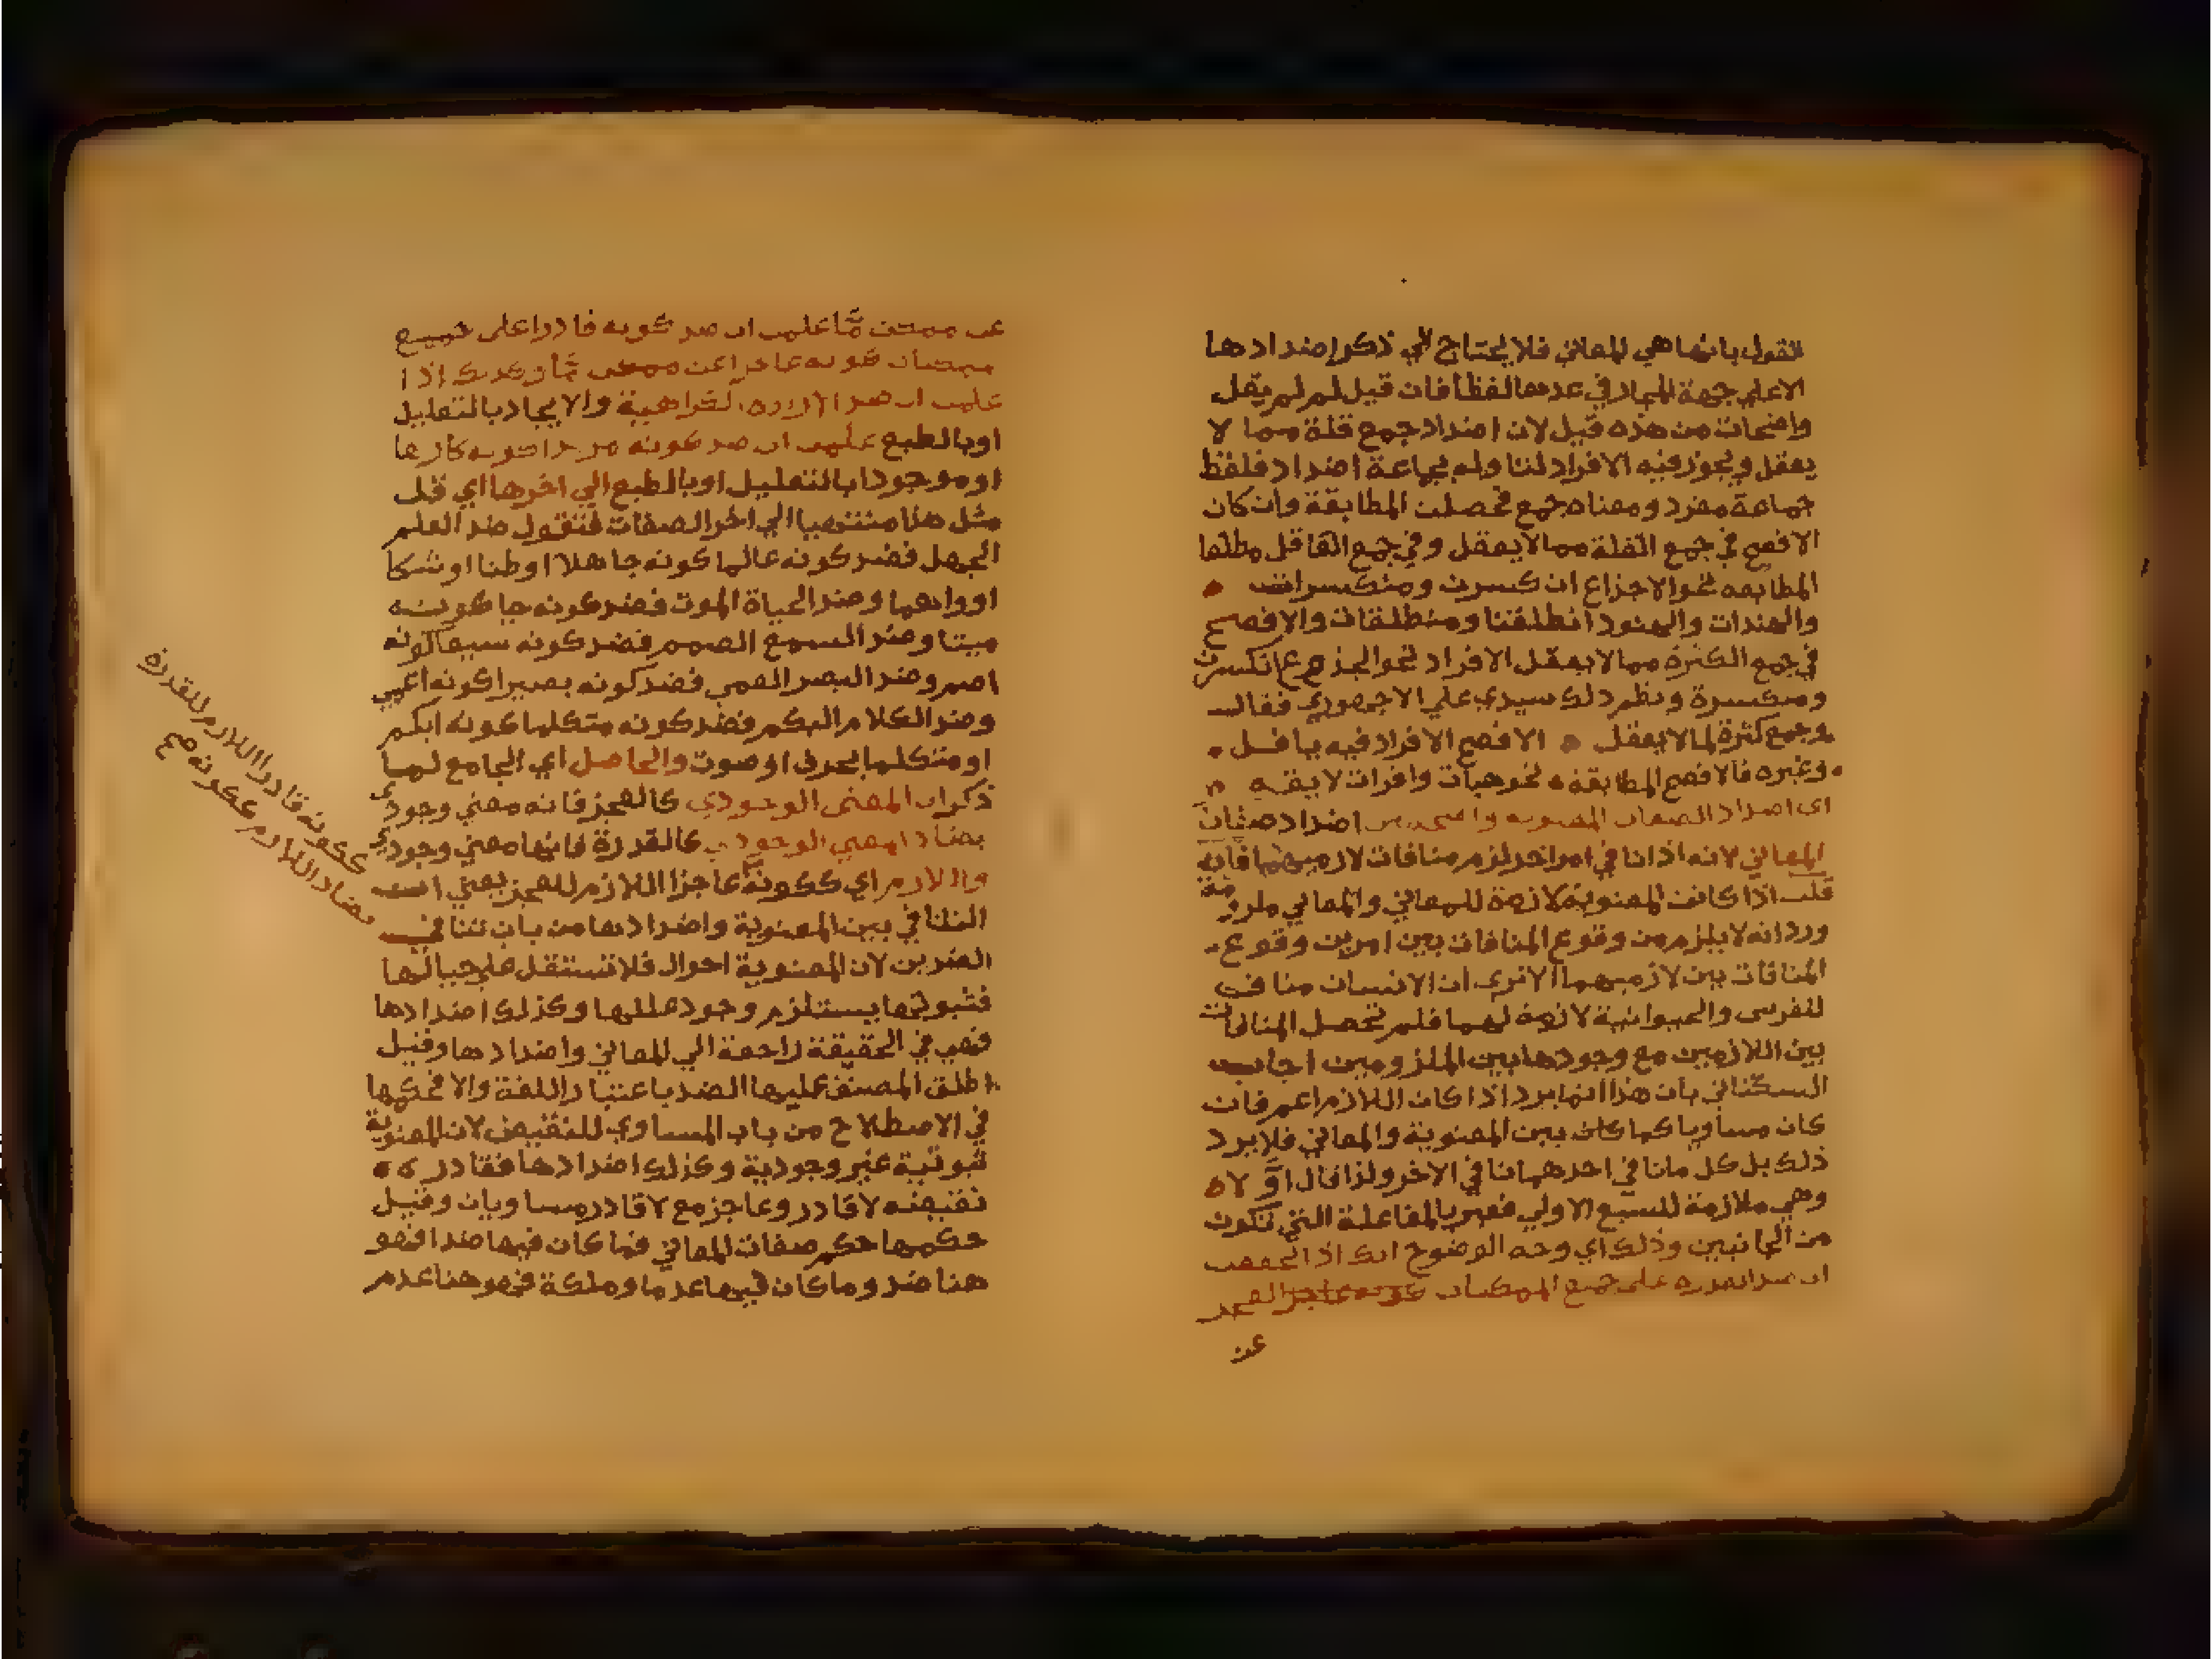 القول بانها هي المعاني فلا يحتاج الي ذكر اضدادها
الا علي جهة المجاز في عدها لفظا فان قيل لم لم يقل
واضحات من هذه قيل لان اضداد جمع قلة مما لا
يعقل ويجوز فيه الافراد لتاوله بجماعة اضداد فلفظ
جماعة مفرد ومعناه جمع فحصلت المطابقة وان كان
الافصح في جمع القلة مما لا يعقل وفي جمع العاقل مطلقا
المطابقه نحو الاجزاع انكسرن ومنكسرات
والهندات والهنود انطلقنا ومنطلقات والافصح
في جمع الكثرة مما لا يعقل الافراد نحو الجذوع انكسرت
ومنكسرة ونظم ذلك سيدي علي الاجهوري فقال
وجمع كثرة لما لا يعقل الافصح الافراد فيه يا فل
وغيره فالافصح المطابقه نحو هبات وافرات لايقه
اي اضداد الصفات المعنويه واضحه من اضداد صفات
المعاني لانه اذا نافي امر اخر لزم منافات لازميهما فان
قلت اذا كانت المعنوية لازمة للمعاني والمعاني ملزومة
ورد انه لا يلزم من وقوع المنافات بين امرين وقوع
المنافات بين لازميهما الا تري ان الانسان مناف
للفرس والحيوانية لازمة لهما فلم تحصل المنافات
بين اللازمين مع وجودها بين الملزومين اجاب
السكتاني بان هذا انما يرد اذا كان اللازم اعم فان
كان مساويا كما كان بين المعنوية والمعاني فلا يرد
ذلك بل كل ما نافي احدهما نافي الاخر ولذا قال اولا
وهي ملازمة للسبع الاولي فعبر بالمفاعلة التي تكون
من الجانبين وذلك اي وجه الوضوح انك اذا تحققت
ان ضد القدره علي جميع الممكنات العجز
عن
عن ممكن ما علمت ان ضد كونه قادرا علي جميع
الممكنات كونه عاجزا عن ممكن ما وكذلك اذا
علمت ان ضد الاراده الكراهية والايجاد بالتعليل
او بالطبع علمت ان ضد كونه مريدا كونه كارها
او موجودا بالتعليل او بالطبع الي اخرها اي قل
مثل هذا منتهيا الي اخر الصفات فتقول ضد العلم
الجهل فضد كونه عالما كونه جاهلا او ظنا او شكا
او واهما وضد الحياة الموت فضد كونه حيا كونه
ميتا وضد السمع الصمم فضد كونه سميعا كونه
اصم وضد البصر العمي فضد كونه بصيرا كونه اعمي
وضد الكلام البكم فضد كونه متكلما كونه ابكم
او متكلما بحرف او صوت والحاصل اي الجامع لما
ذكر ان المعنى الوجودي كالعجز فانه معني وجودي
يضاد المعنى الوجودي كالقدرة فانها معني وجودي
واللازم اي ككونه عاجزا اللازم للعجز يعني ان
التنافي بين المعنوية واضدادها من باب تنافي
الضدين لان المعنوية احوال فلا تستقل علي حيالها
فثبوتها يستلزم وجود عللها وكذلك اضدادها
فهي في الحقيقة راجعة الي المعاني واضدادها وقيل
اطلق المصنف عليها الضد باعتبار اللغة والا فحكمها
في الاصطلاح من باب المساوي للنقيض لان المعنوية
ثبوتية غير وجودية وكذلك اضدادها فقادر
نقيضه لا قادر وعاجز مع لا قادر مساويان وقيل
حكمها حكم صفات المعاني فما كان فيها ضدا فهو
هنا ضد وما كان فيها عدما وملكة فهو هنا عدم
يضاد اللازم ككونه
ككونه قادرا اللازم للقدرة
صح